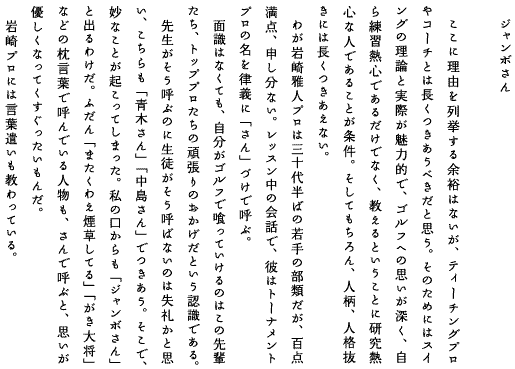 ジャンボさん
ここに理由を列挙する余裕はないが、ティーチングプロ
やコーチとは長くつきあうべきだと思う。そのためにはスイ
ングの理論と実際が魅力的で、ゴルフへの思いが深く、自
ら練習熱心であるだけでなく、教えるということに研究熱
心な人であることが条件。そしてもちろん、人柄、人格抜
きには長くつきあえない。
わが岩崎雅人プロは三十代半ばの若手の部類だが、百点
満点、申し分ない。レッスン中の会話で、彼はトーナメント
プロの名を律義に「さん」づけで呼ぶ。
面識はなくても、自分がゴルフで喰っていけるのはこの先輩
たち、トッププロたちの頑張りのおかげだという認識である。
先生がそう呼ぶのに生徒がそう呼ばないのは失礼かと思
い、こちらも「青木さん」「中島さん」でつきあう。そこで、
妙なことが起こってしまった。私の口からも「ジャンボさん」
と出るわけだ。ふだん「またくわえ煙草してる」「がき大将」
などの枕言葉で呼んでいる人物も、さんで呼ぶと、思いが
優しくなってくすぐったいもんだ。
岩崎プロには言葉遣いも教わっている。